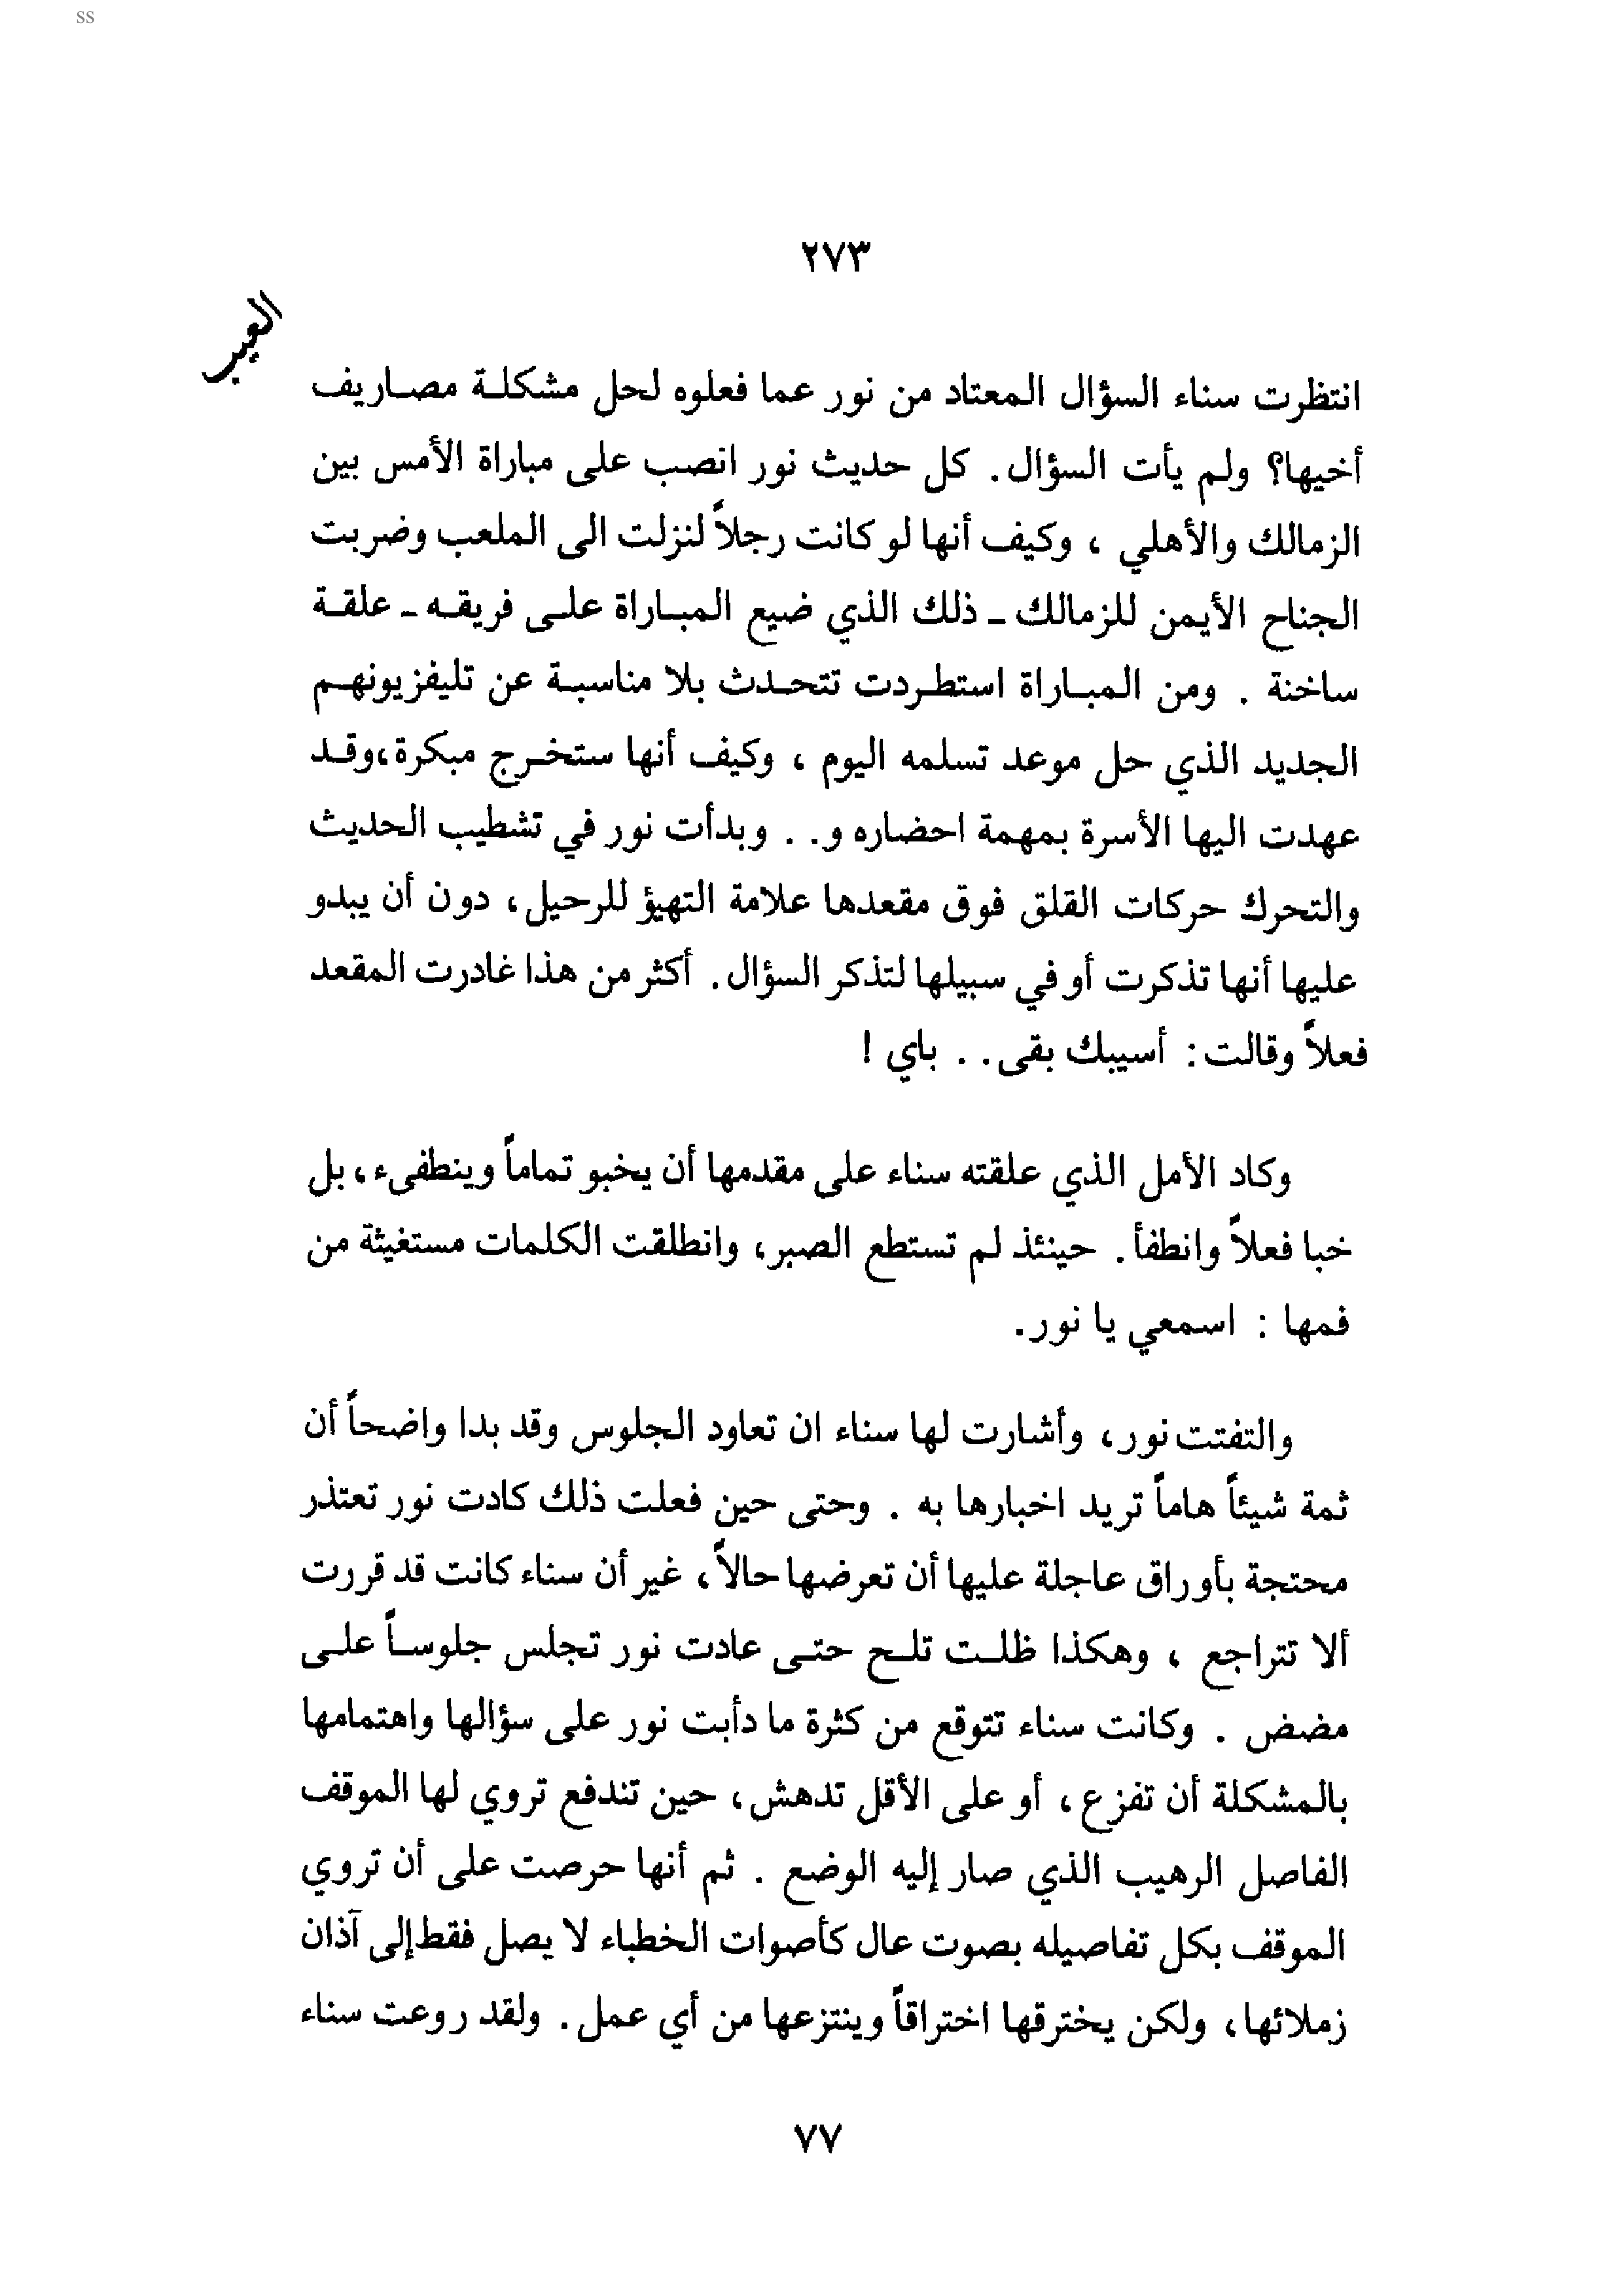 ss
٢٧٣
العيب
انتظرت سناء السؤال المعتاد من نور عما فعلوه لحل مشكلة مصاريف
أخيها؟ ولم يأت السؤال. كل حديث نور انصب على مباراة الأمس بين
الزمالك والأهلي ، وكيف أنها لو كانت رجلاً لنزلت الى الملعب وضربت
الجناح الأيمن للزمالك ـ ذلك الذي ضيع المباراة على فريقه ـ علقة
ساخنة . ومن المباراة استطردت تتحدث بلا مناسبة عن تليفزيونهم
الجديد الذي حل موعد تسلمه اليوم ، وكيف أنها ستخرج مبكرة،وقد
عهدت اليها الأسرة بمهمة احضاره و. . وبدأت نور في تشطيب الحديث
والتحرك حركات القلق فوق مقعدها علامة التهيؤ للرحيل، دون أن يبدو
عليها أنها تذكرت أو في سبيلها لتذكر السؤال. أكثر من هذا غادرت المقعد
فعلاً وقالت: أسيبك بقى. . باي !
وكاد الأمل الذي علقته سناء على مقدمها أن يخبو تماماً وينطفىء، بل
خبا فعلاً وانطفأ. حينئذ لم تستطع الصبر، وانطلقت الكلمات مستغيثة من
فمها : اسمعي يا نور.
والتفتت نور، وأشارت لها سناء ان تعاود الجلوس وقد بدا واضحاً أن
ثمة شيئاً هاماً تريد اخبارها به . وحتى حين فعلت ذلك كادت نور تعتذر
محتجة بأوراق عاجلة عليها أن تعرضها حالاً، غير أن سناء كانت قد قررت
ألا تتراجع ، وهكذا ظلت تلح حتى عادت نور تجلس جلوساً على
مضض . وكانت سناء تتوقع من كثرة ما دأبت نور على سؤالها واهتمامها
بالمشكلة أن تفزع، أو على الأقل تدهش، حين تندفع تروي لها الموقف
الفاصل الرهيب الذي صار إليه الوضع . ثم أنها حرصت على أن تروي
الموقف بكل تفاصيله بصوت عال كأصوات الخطباء لا يصل فقط إلى آذان
زملائها، ولكن يخترقها اختراقاً وينتزعها من أي عمل. ولقد روعت سناء
٧٧